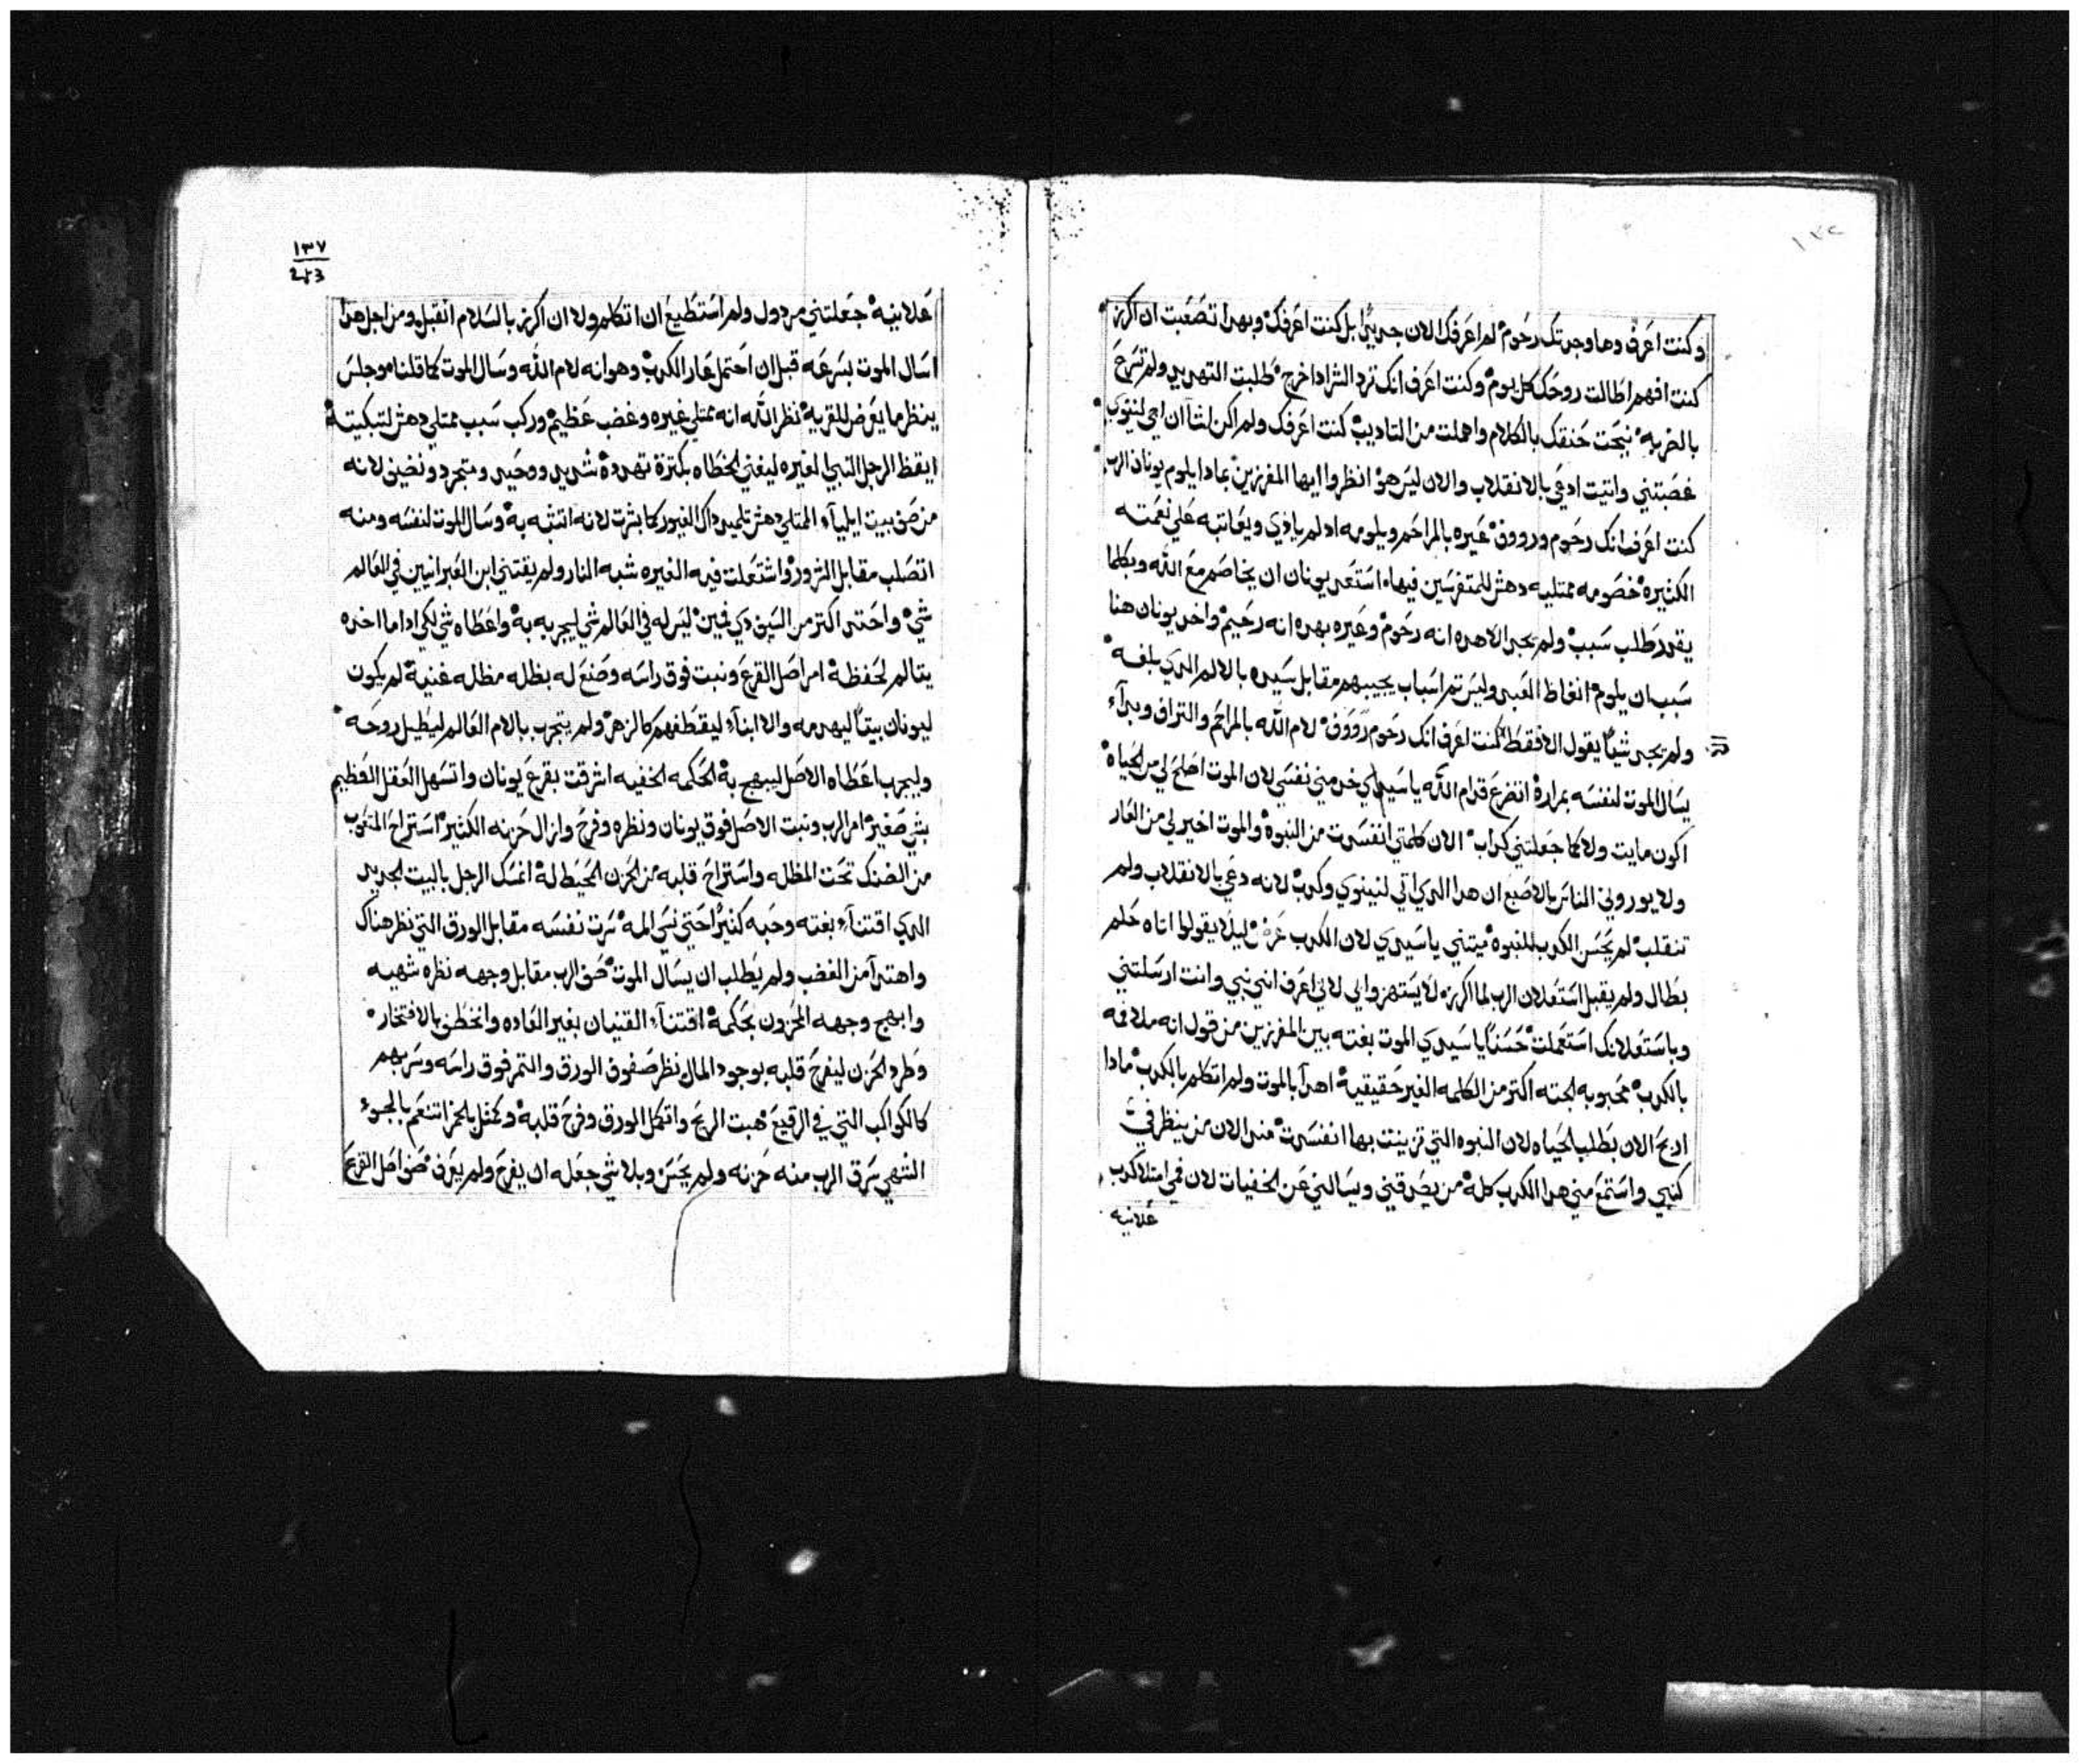 وكنت اعرف وها وجدتك رحوم لم اعرفك الان جديدًا بل كنت اعرفك وبهدا تصعبت ان اكرز
كنت افهم اطالت روحك كل يوم وكنت اعرف انك ترد الشر ادا خرج طلبت التهديد ولم تسرح
بالضربه نيحت حنقك بالكلام واهملت من التاديب كنت اعرفك ولم اكن اشا ان اجي لنينوي
غصبتني واتيت ادعي بالانقلاب والان ليس هو انظروا ايها المفرزين بمادا يلوم يونان الرب
كنت اعرف انك رحوم ورووف عيره بالمراحم ويلومه اد لم يادي ويعاتبه علي نعمته
الكثيره خصومه ممتليه دهش للمتفرسين فيها استعد يونان ان يخاصم مع الله وبكلما
يقدر طلب سبب ولم يجد الا هده انه رحوم وعيره بهده انه رحيم واخد يونان هنا
سبب ان يلوم الفاظ العبد وليس تم اسباب يجيبهم مقابل سيده بالالم الدي بلغه
ولم يجد شيًا يقول الا فقط كنت اعرف انك رحوم رووف لام الله بالمراحم والتراف وبدآء
يسال الموت لنفسه بمرارة اتضرع قدام الله يا سيدي خد مني نفسي لان الموت اصلح لي من الحياه
اكون مايت ولا كما جعلتني كداب الان كلمتي انفسدت من النبوة والموت اخير لي من العار
ولا يوروني الناس بالاصبع ان هدا الدي اتي لنينوي وكدب لانه دعي بالانقلاب ولم
تنقلب لم يحسن الكدب للنبوة ميتني يا سيدي لان الكدب ليلا يقولوا اتاه حلم
بطال ولم يقبل استعلان الرب لما اكرزه لا يستهزوا بي لاني اعرف انني نبي وانت ارسلتني
وباستعلانك استعملت حسنًا يا سيدي الموت بغته بين المفرزين من قول انه ملاقه
بالكدب محبوبه لجته اكتر من الكلمه الغير حقيقيه اهدآ بالموت ولم اتكلم بالكدب مادا
اربح الان بطلب الحياه لان النبوه التي تزينت بها انفسدت مند الان من ينظر في
كتبي واستمع مني هدا الكدب كله من يصدقني ويسالني عن الخفيات لان في امتلا كدب
علانيه
١٣٧
علانيه جعلتني مردول ولم استطيع ان اتكلم ولا ان اكرز بالسلام انقبل ومن اجل هدا
اسال الموت بسرعه قبل ان احتمل عار الكدب وهو انه لام الله وسال الموت كما قلنا وجلس
ينظر ما يعرض للقريه نظر الله انه ممتلي غيره وغضب عظيم وركب سبب ممتلي دهش لتبكيته
ايقظ الرجل النبي الغيره ليغني الخطاه بكترة تهدده شديد ووحيد ومتجرد ونضيف لانه
من صف بيت ايليآء الممتلي دهش تلميد داك الغيور كما بشرت لانه اتشبه به وسال الموت لنفسه ومنه
اتصلب مقابل الشرور واشتعلت فيه الغيره شبه النار ولم يقتني ابن العبرانيين في العالم
شي واحتد اكتر من السيف دي فمين ليس له في العالم شي ليجربه به واعطاه شي لكي ادا ما اخده
يتالم لحفظه امر اصل القرع ونبت فوق راسه وصنع له بظله مظله غنية لم يكون
ليونان بيتًا ليهدمه والا ابنآء ليقطفهم كالزهر ولم يتجرب بالام العالم ليطيل روحه
وليجرب اعطاه الاصل ليبهج به الحكمه الخفيه اشرقت بقرع يونان واتسهل العقل العظيم
بشي صغير امر الرب ونبت الاصل فوق يونان ونظره وفرح وازال حزنه الكثير استراح المتعوب
من الضنك تحت المظله واستراح قلبه من الحزن المحيط له اتمسك الرجل بالبيت الجديد
الدي اقتنآء بغته وحبه كثيرًا حتي نسي المه سرت نفسه مقابل الورق التي نظر هناك
واهتدآ من الغضب ولم يطلب ان يسال الموت صف الرب مقابل وجهه نظره شهيه
وابهج وجهه المحزون بحكمة اقتنآء القنيان بغير العاده وانخطف بالافتخار
وطرد الحزن ليفرح قلبه بوجود المال نظر صفوف الورق والتمر فوق راسه وسر بهم
كالكواكب التي في الرقيع هبت الريح واتكل الورق وفرح قلبه وكمثل بالخمر اتنعم بالجوء
الشهي سرق الرب منه حزنه ولم يحسن وبلا شي جعله ان يفرح ولم يعرف صف اصل القرع